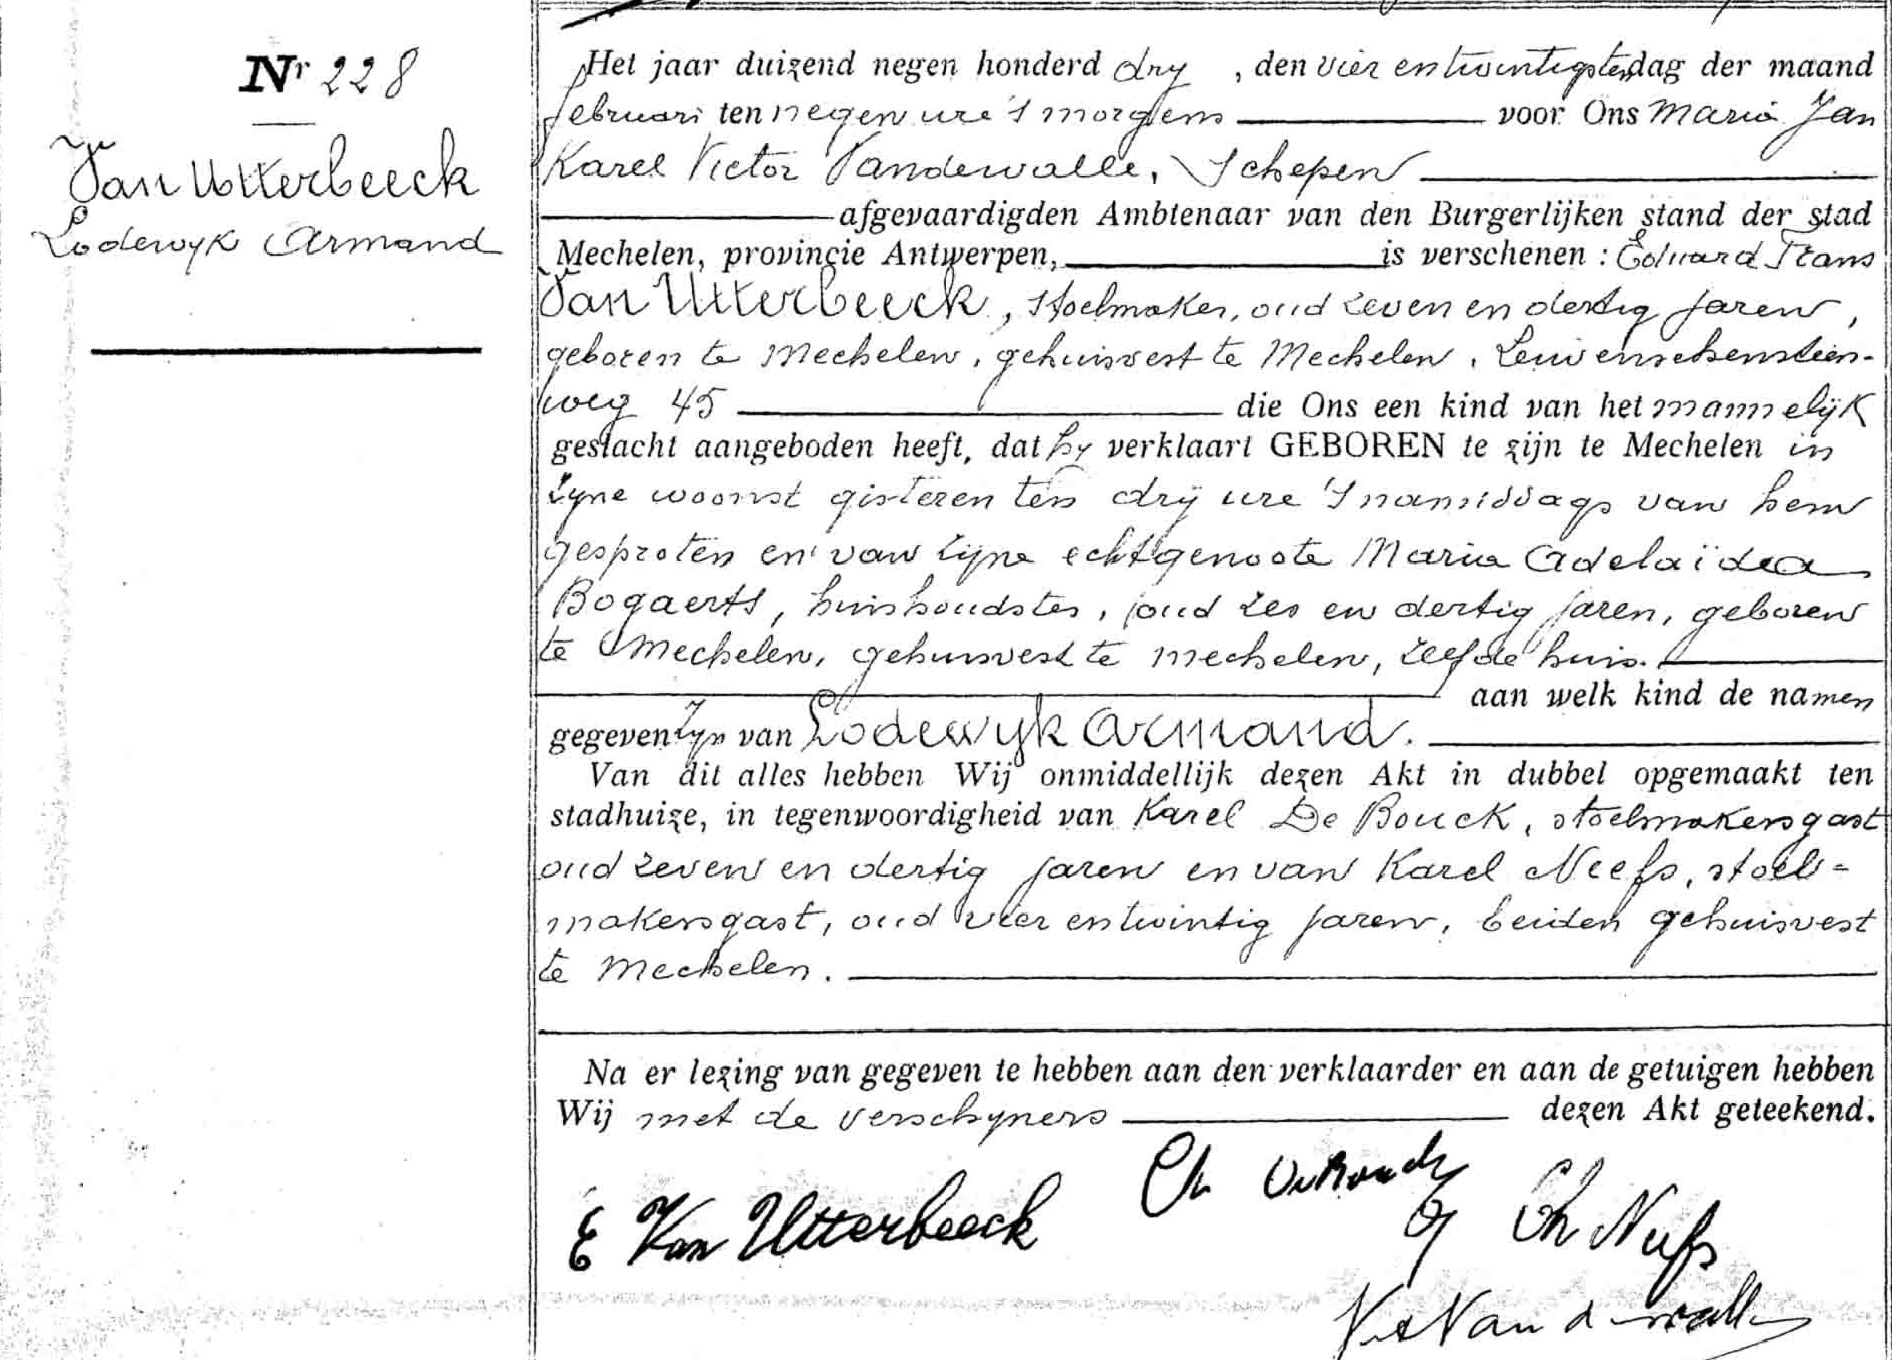 Nr 228
Van Utterbeeck
Lodewyk Armand
Het jaar duizend negen honderd dry, den vier en twintigsten dag der maand
februari ten negen ure 's morgens voor Ons Maria Jan
Karel Victor Vandewalle, Schepen
afgevaardigden Ambtenaar van den Burgerlijken stand der stad
Mechelen, provincie Antwerpen, is verschenen : Eduard Frans
Van Utterbeeck, stoelmaker, oud zeven en dertig jaren,
geboren te Mechelen, gehuisvest te Mechelen,
weg 45 die Ons een kind van het mannelijk
geslacht aangeboden heeft, dat hy verklaart GEBOREN te zijn te Mechelen in
zyne woonst gisteren ten drij ure 's namiddags van hem
gesproten en van zijne echtgenoote Maria Adelaïdea
Bogaerts, huishoudster, oud zes en dertig jaren, geboren
te Mechelen, gehuisvest te Mechelen, zelfde huis.
aan welk kind de namen
gegeven zyn van Lodewyk Armand.
Van dit alles hebben Wij onmiddellijk dezen Akt in dubbel opgemaakt ten
stadhuize, in tegenwoordigheid van Karel De Bouck, stoelmakersgast
oud zeven en dertig jaren en van Karel Neefs, stoel-
makersgast, oud vier en twintig jaren, beiden gehuisvest
te Mechelen.
Na er lezing van gegeven te hebben aan den verklaarder en aan de getuigen hebben
Wij met de verschyners dezen Akt geteekend.
E Van Utterbeeck
Ch Neefs